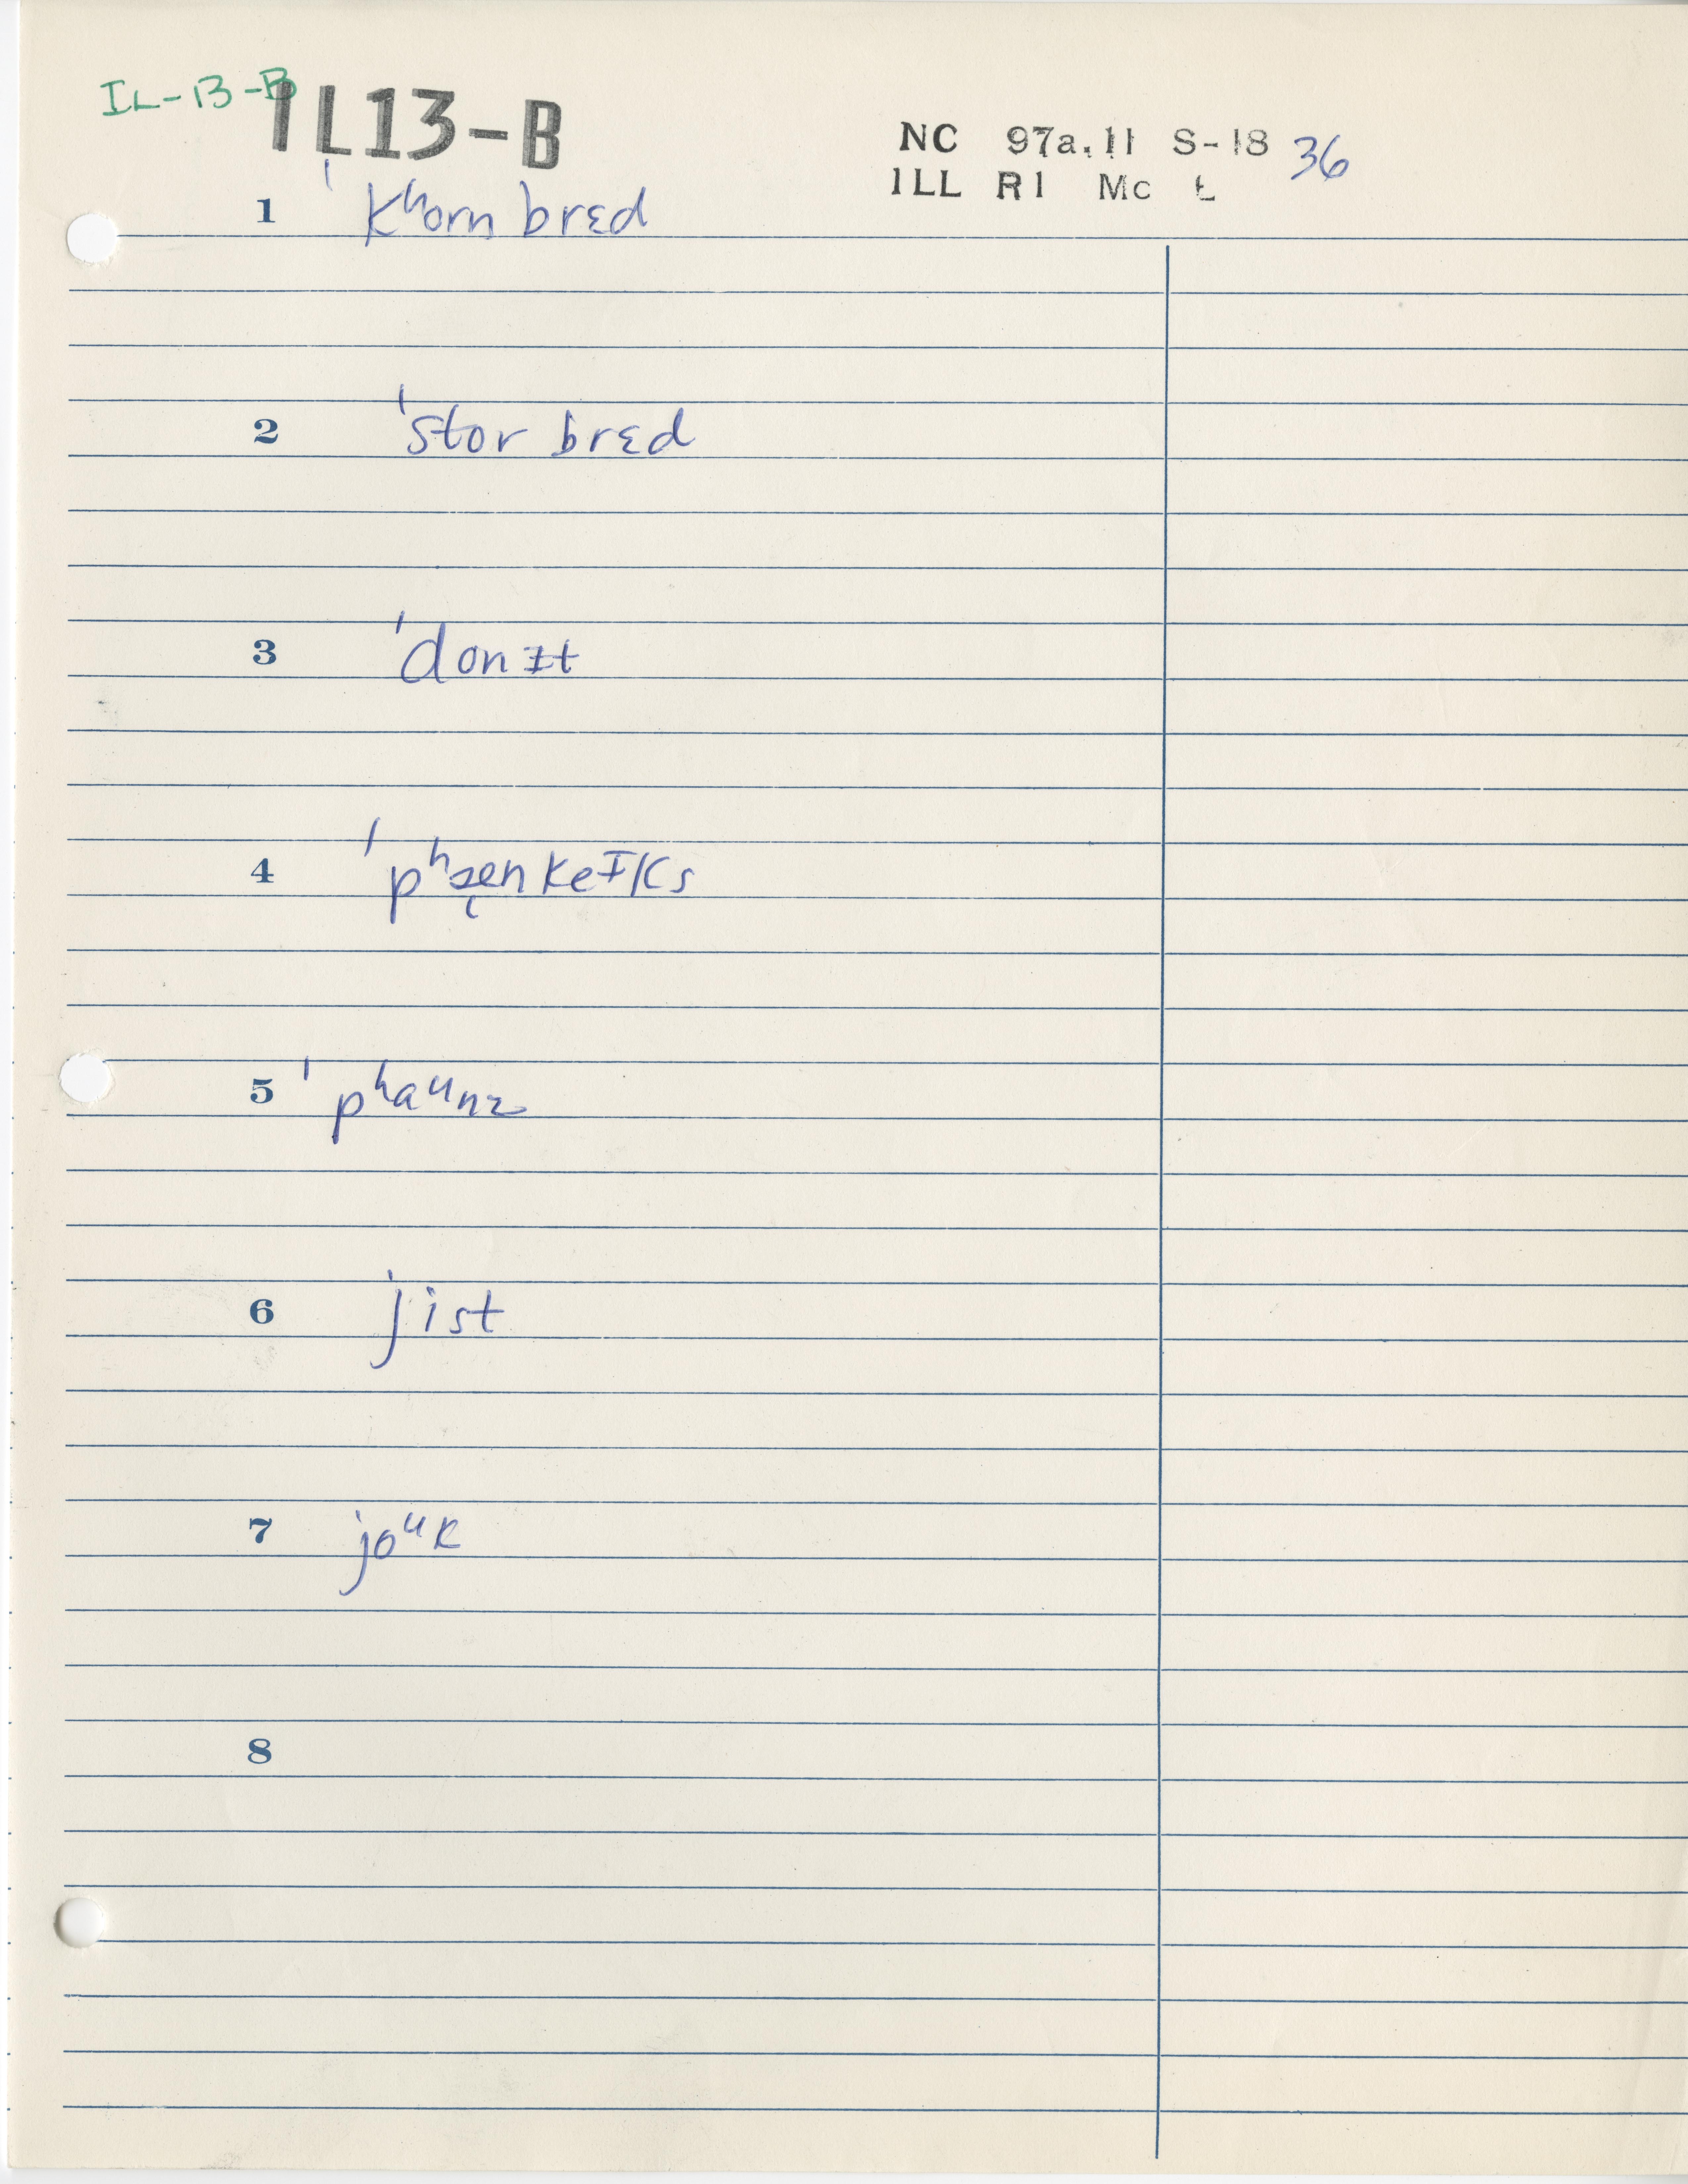 IL-13-B
IL13-B
NC 97a.11 S-18 36
ILL R1 Mc t
1 ˈkʰorn brɛd
2 ˈstor brɛd
3 ˈdonɨt
4 ˈpʰæ̨nkeᴵks
5 ˈpʰaᵘnz
6 jist
7 joᵘk
8